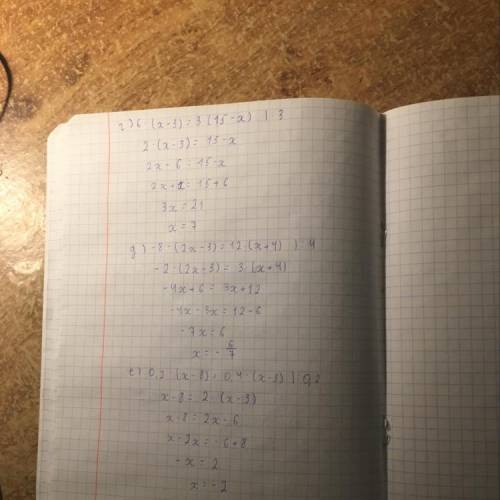 г) 6 · (x-3) = 3 (15-x) | : 3
2 · (x-3) = 15-x
2x - 6 = 15-x
2x+x = 15+6
3x = 21
x = 7
д) -8 · (2x-3) = 12 · (x+4) | : 4
-2 · (2x-3) = 3 · (x+4)
-4x+6 = 3x+12
-4x-3x = 12-6
-7x = 6
x = - 6/7
е) 0,2 · (x-8) = 0,4 · (x-3) | 0,2
x-8 = 2 · (x-3)
x-8 = 2x-6
x-2x = -6+8
-x = 2
x = -2